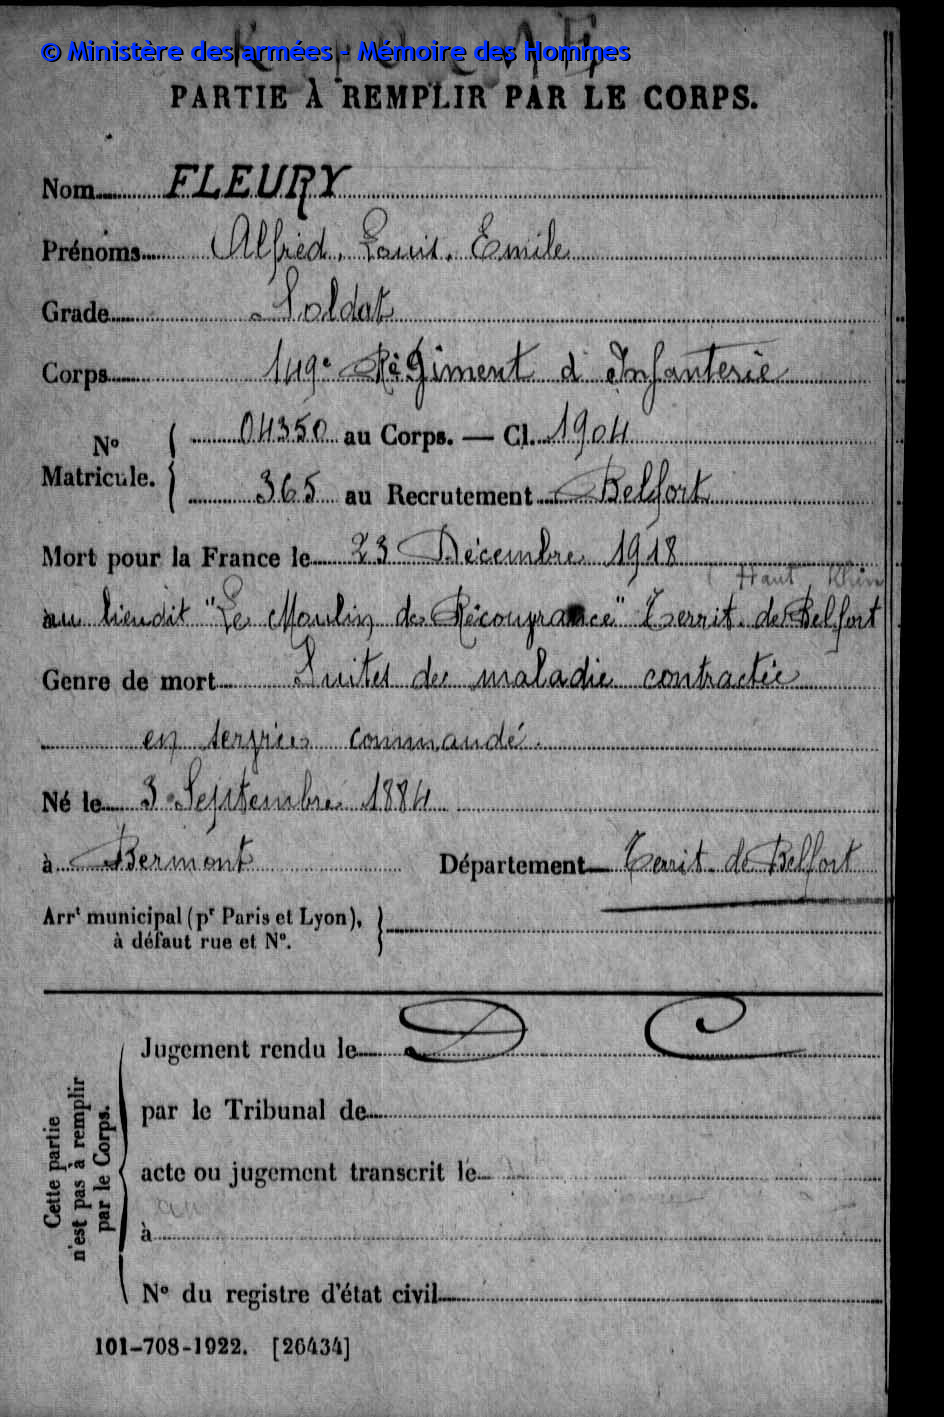 © Ministère des armées - Mémoire des Hommes
PARTIE À REMPLIR PAR LE CORPS.
Nom FLEURY
Prénoms Alfred, Louis, Emile
Grade Soldat
Corps 149e Régiment d'Infanterie
No Matricule. 04350 au Corps. — Cl. 1904
365 au Recrutement Belfort
Mort pour la France le 23 Décembre 1918
(Haut Rhin
au lieudit "Le Moulin de Récouvrance" Territ. de Belfort
Genre de mort Suites de maladie contractée
en service commandé.
Né le 3 Septembre 1884
à Bermont Département Territ. de Belfort
Arrt municipal (pr Paris et Lyon),
à défaut rue et No.
Cette partie
n'est pas à remplir
par le Corps.
Jugement rendu le D C
par le Tribunal de
acte ou jugement transcrit le
à
No du registre d'état civil
101-708-1922. [26434]